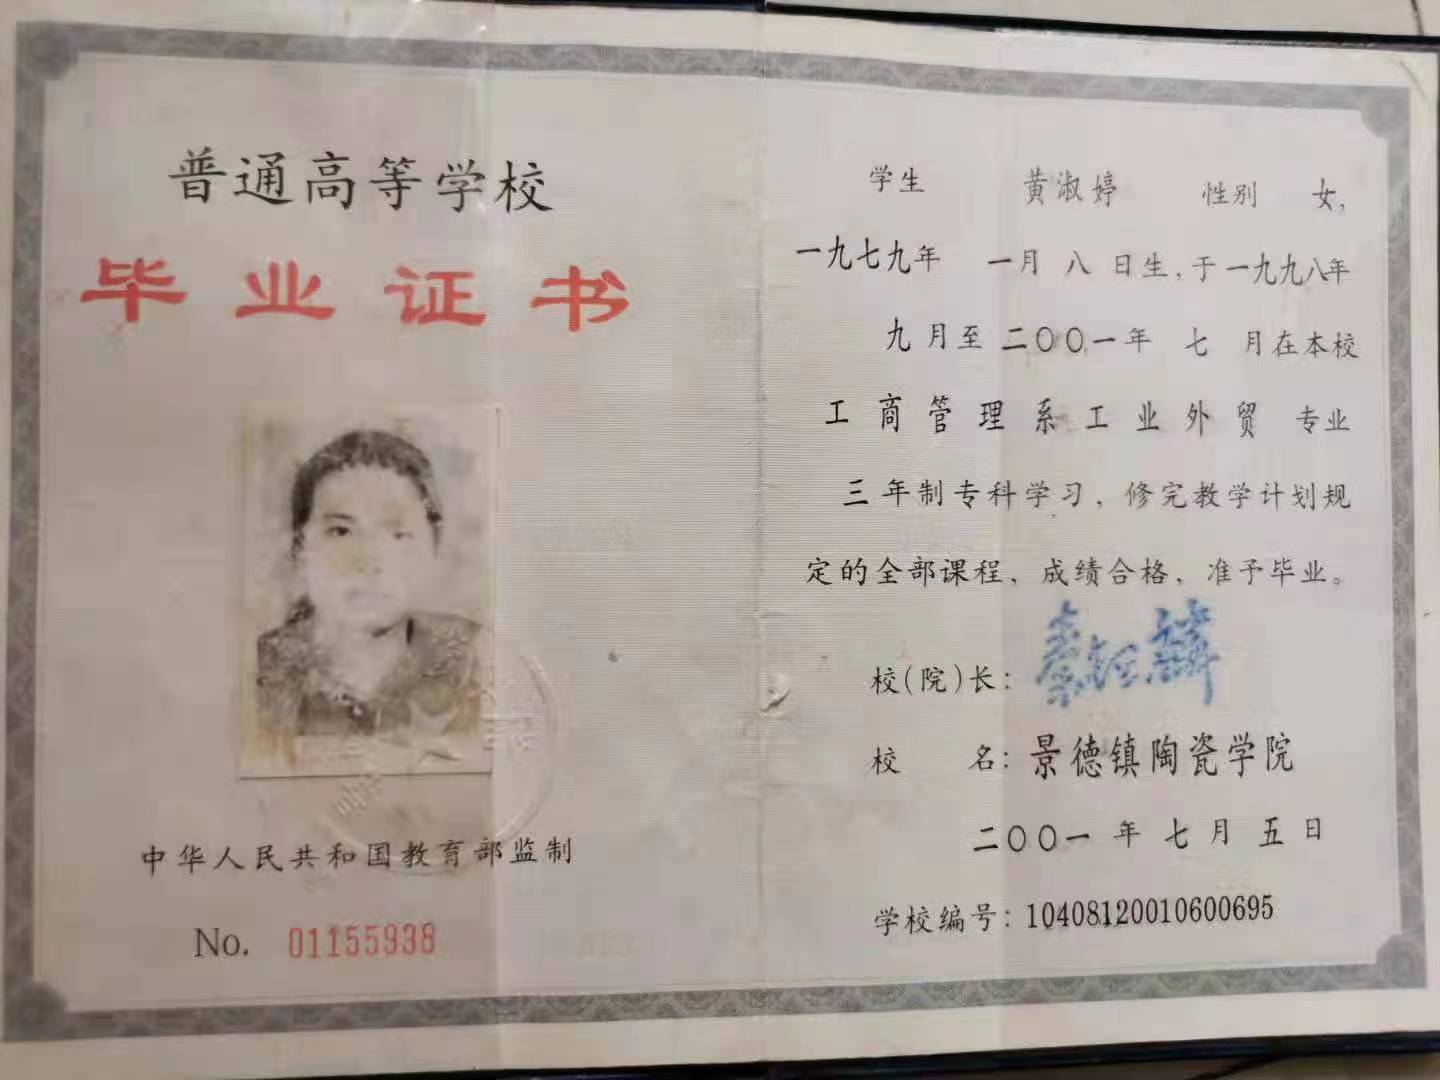 普通高等学校
毕业证书
中华人民共和国教育部监制
No. 01155938
学生 黄淑婷 性别 女,
一九七九年 一月 八 日生,于一九九八年
九月至二〇〇一年 七 月在本校
工商管理系工业外贸 专业
三年制专科学习,修完教学计划规
定的全部课程、成绩合格,准予毕业。
校(院)长:
校 名: 景德镇陶瓷学院
二〇〇一年七月五日
学校编号: 10408120010600695